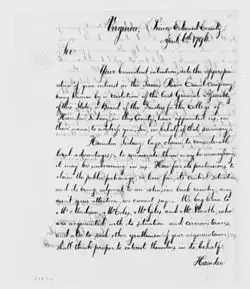 Virginia, Prince Edward County
Jany 6th 1796
Sir
Your benevolent intention, as to the appropria-
tion of your interest in the James River Canal company,
being known by a resolution of the last General Assembly
of this State; a Board of the Trustees for the College of
Hampden Sidney, in this County, have appointed us, in
their name, to address you, Sir, on behalf of that seminary.
Hampden Sidney lays claim to considerable
local advantages, to enumerate them may be unnecessary,
it may be unbecoming. How far its pretensions to
claim the public patronage, or how far, its central situation
and its being adjacent to an extensive back country, may
merit your attention, we cannot say. We beg leave to
Mr. Madison, Mr. Giles and Mr. Venable, who
are acquainted with its situation and circumstances,
and also to such other gentlemen of your acquaintance, as
shall think proper to interest themselves in its behalf.
Hampden